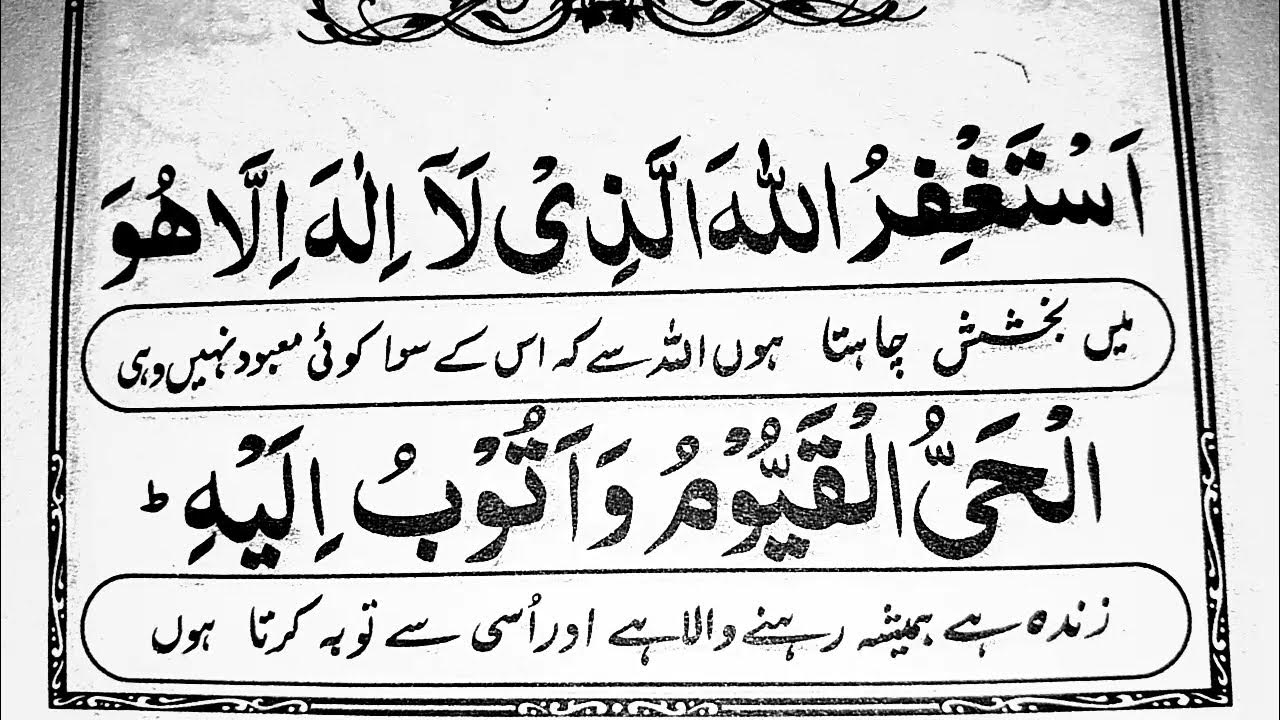 اَسْتَغْفِرُ اللّٰهَ الَّذِیْ لَاۤ اِلٰهَ اِلَّا هُوَ
میں بخشش چاہتا ہوں اللہ سے کہ اس کے سوا کوئی معبود نہیں وہی
الْحَیُّ الْقَیُّوْمُ وَ اَتُوْبُ اِلَیْهِ ؕ
زندہ ہے ہمیشہ رہنے والا ہے اور اُسی سے توبہ کرتا ہوں